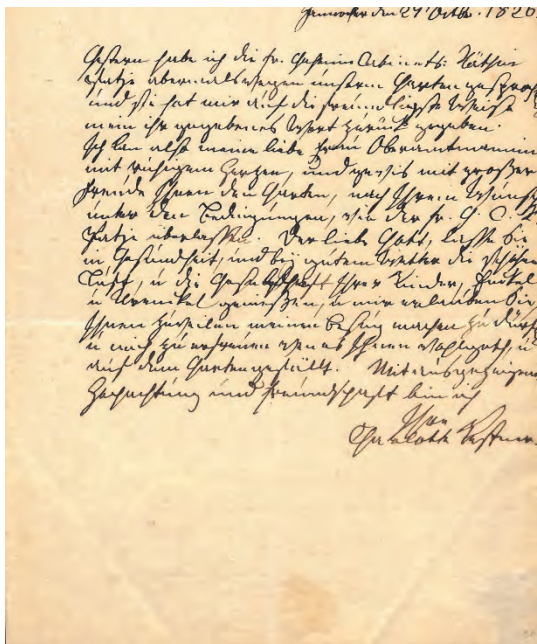 Hannover den 29 Octbr. 1826.
Gestern habe ich die Fr. Geheime Cabinets: Räthin
Patje abermals wegen unserm Garten gesproch
und sie hat mir auf die freundligste Weise
mein ihr gegebenes Wort zurück gegeben.
Ich kan also meine liebe Frau Oberamtmannin
mit ruhigem Herzen, und gewis mit großer
Freude Ihnen den Garten, nach Ihrem Wunsch
unter den Bedingungen, wie der Fr. G. C. R.
Patje überlassen. Der liebe Gott, lasse Sie
in Gesundheit, und bey gutem Wetter die schöne
Luft, u die Gesellschaft Ihrer Kinder, Enkel
u Urenkel genießen, u mir erlauben Sie
Ihnen zuweilen meinen Besuch machen zu dürf
u mich zu erfreuen wen es Ihnen wohlgeth u
auf dem Garten gefällt. Mit ausgezeigne
Hochachtung und Freundschaft bin ich
Ihre
Charlotte Kestner.